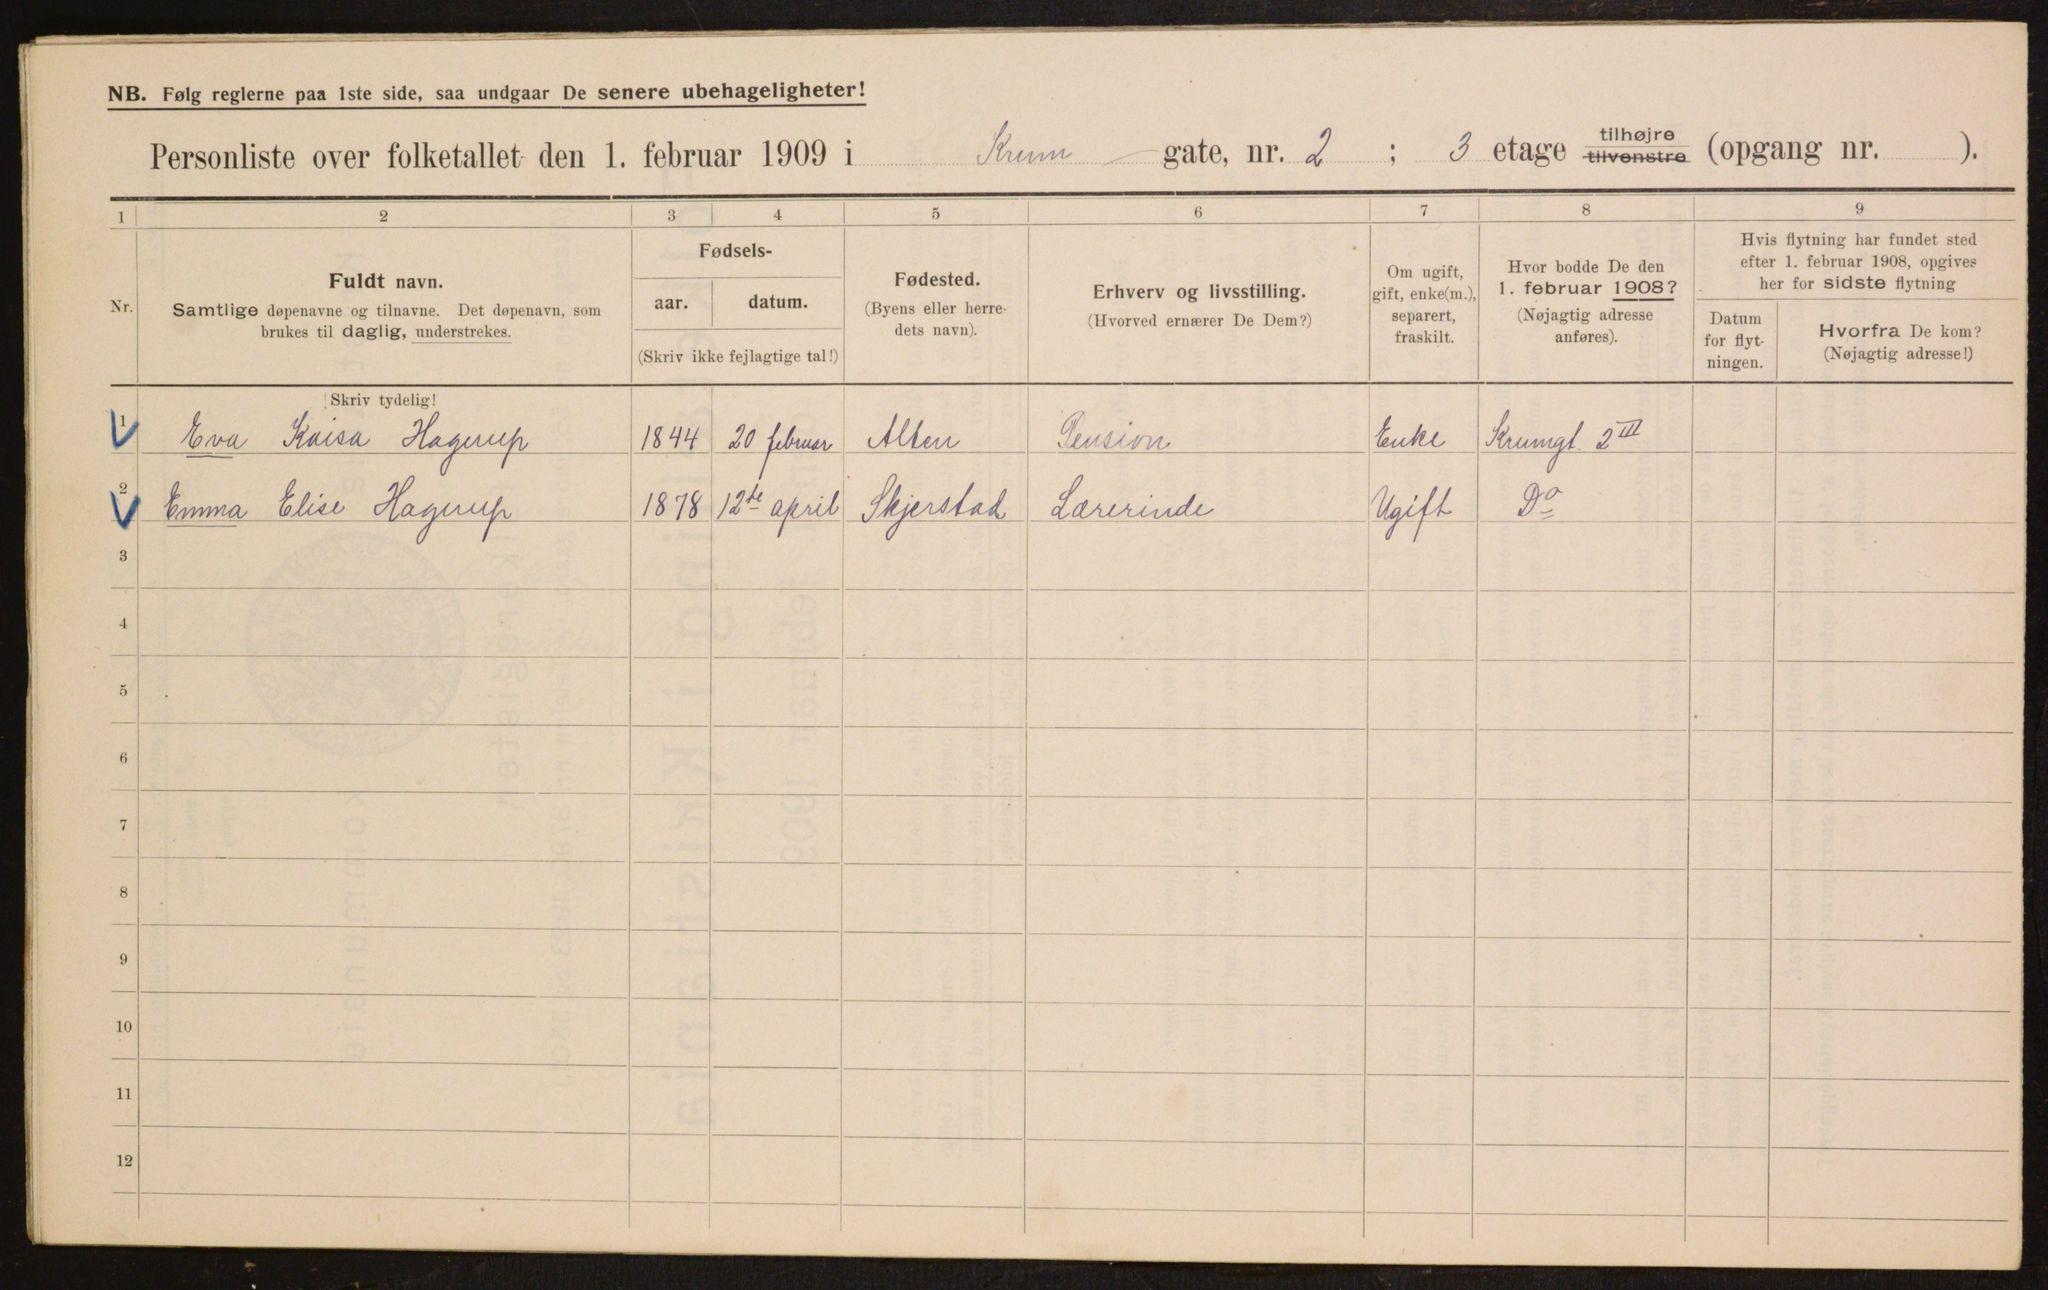 NB. Følg reglerne paa 1ste side, saa undgaar De senere ubehageligheter!
Personliste over folketallet den 1. februar 1909 i Krum gate, nr. 2 ; 3 etage tilhøjre tilvenstre (opgang nr. ).
1 2 3 4 5 6 7 8 9
Nr.
Fuldt navn.
Samtlige døpenavne og tilnavne. Det døpenavn, som
brukes til daglig, understrekes.
Fødsels-
aar. datum.
(Skriv ikke fejlagtige tal!)
Fødested.
(Byens eller herre-
dets navn).
Erhverv og livsstilling.
(Hvorved ernærer De Dem?)
Om ugift,
gift, enke(m.),
separert,
fraskilt.
Hvor bodde De den
1. februar 1908?
(Nøjagtig adresse
anføres).
Hvis flytning har fundet sted
efter 1. februar 1908, opgives
her for sidste flytning
Datum
for flyt-
ningen.
Hvorfra De kom?
(Nøjagtig adresse!)
Skriv tydelig!
1 Eva Kaisa Hagerup 1844 20 februar Alten Pension Enke Krumgt. 2 III
2 Emma Elise Hagerup 1878 12te april Skjerstad Lærerinde Ugift Do
3
4
5
6
7
8
9
10
11
12